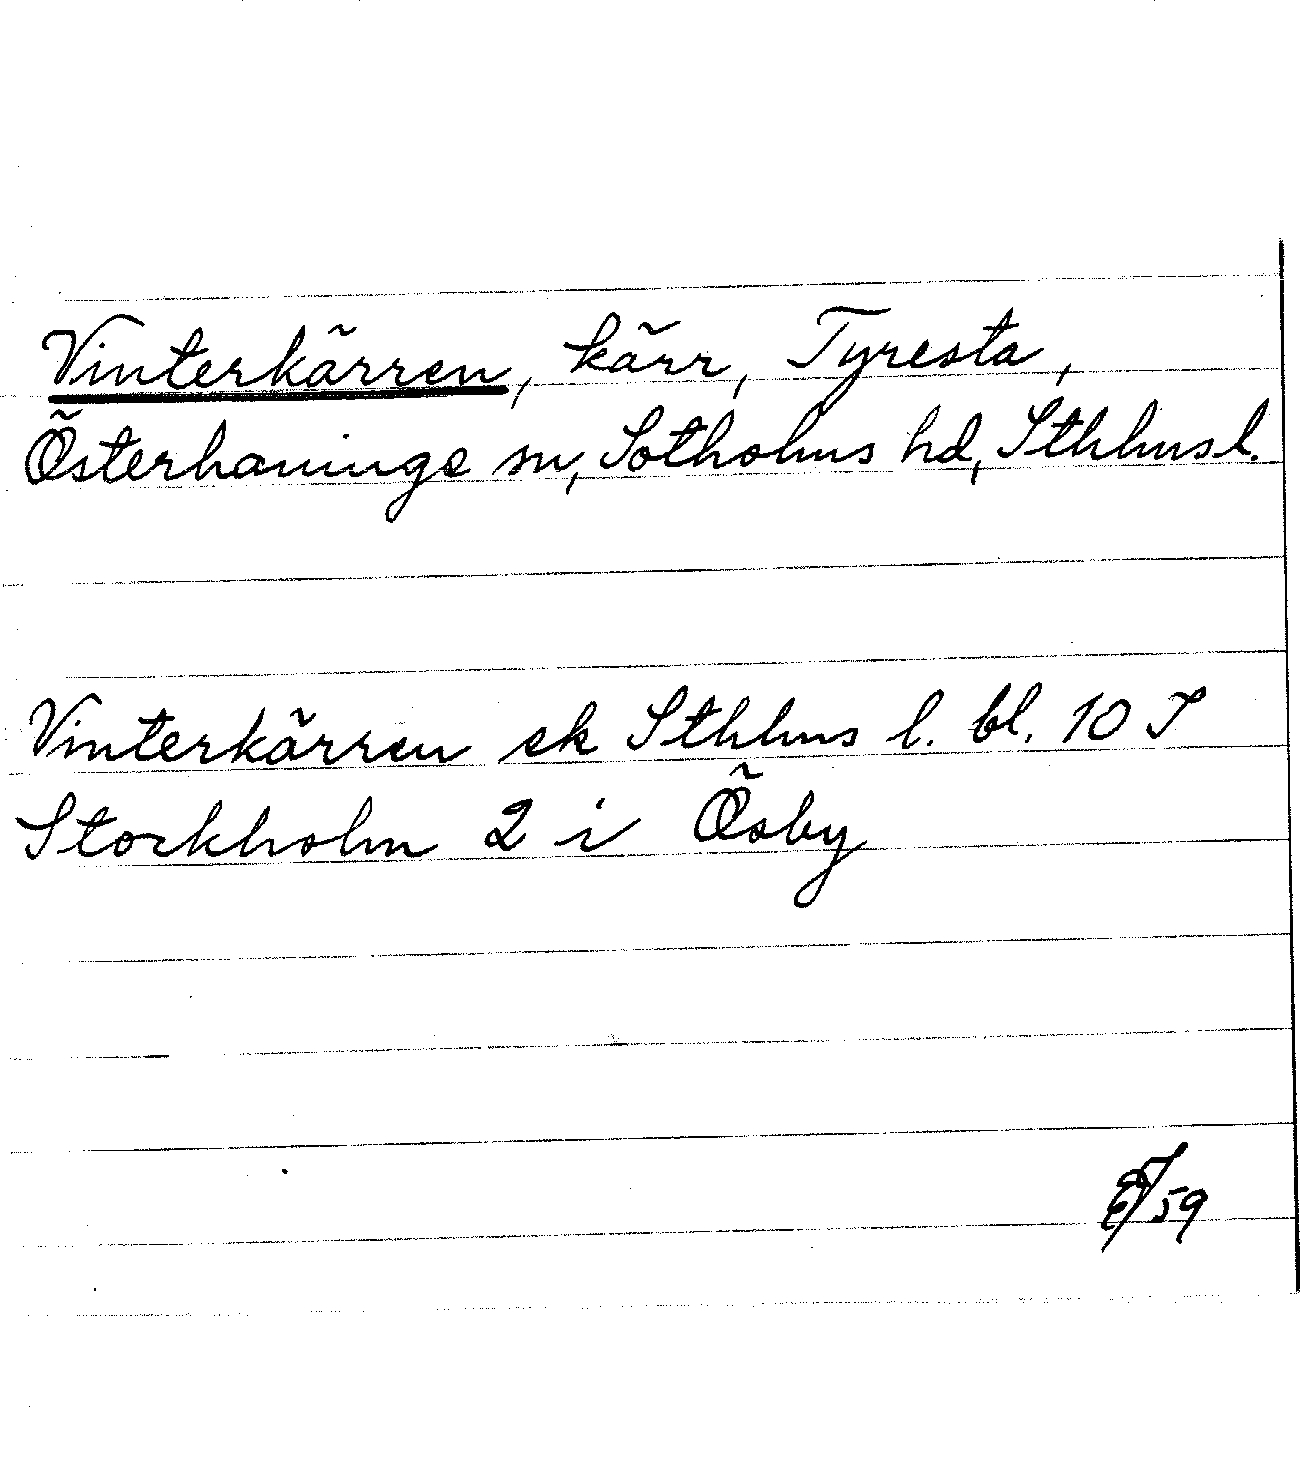 Vinterkärren, kärr, Tyresta,
Österhaninge sn, Sotholms hd, Sthlms l.
Vinterkärren ek Sthlms l. bl. 10 I
Stockholm 2 i Ösby
59